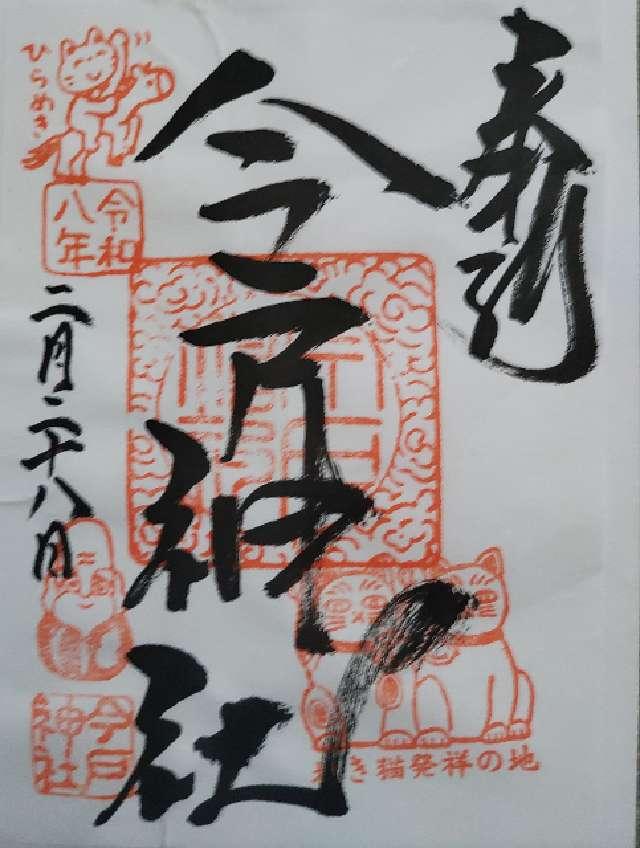 奉拝
今戸神社
ひらめき
令和
八年
二月二十八日
今戸
神社
招き猫発祥の地